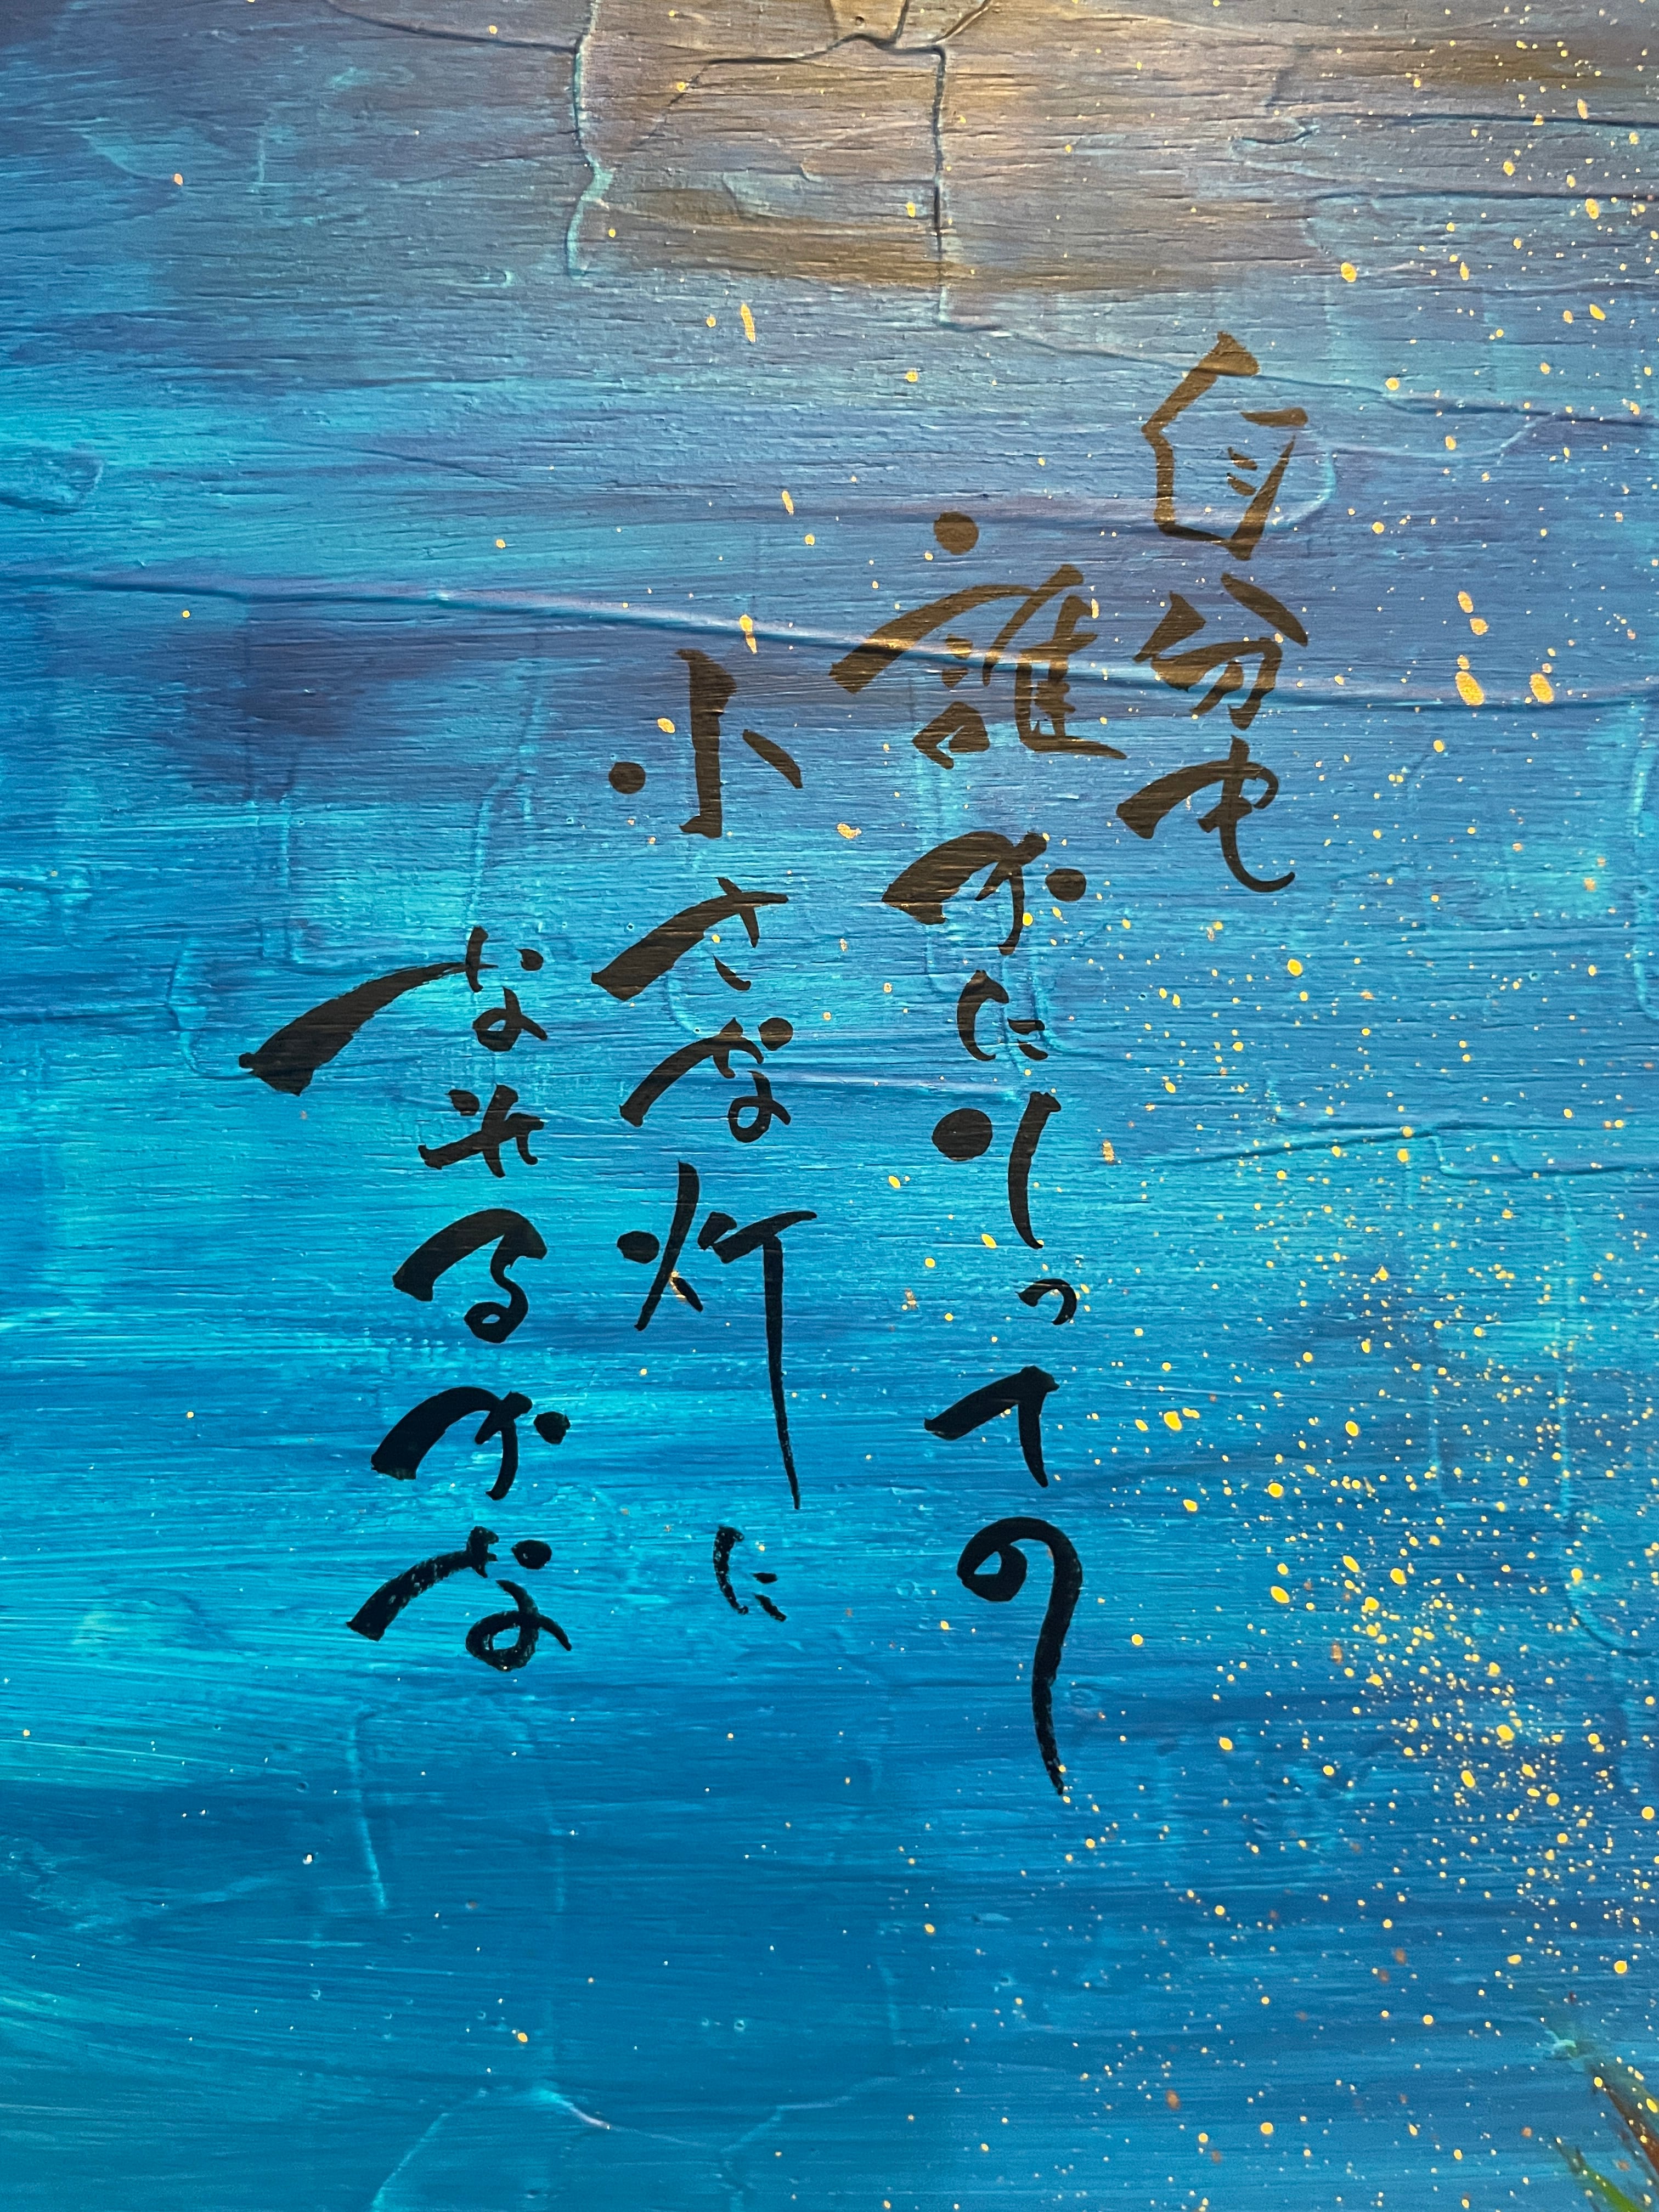 自分も
誰かにとっての
小さな灯に
なれるかな